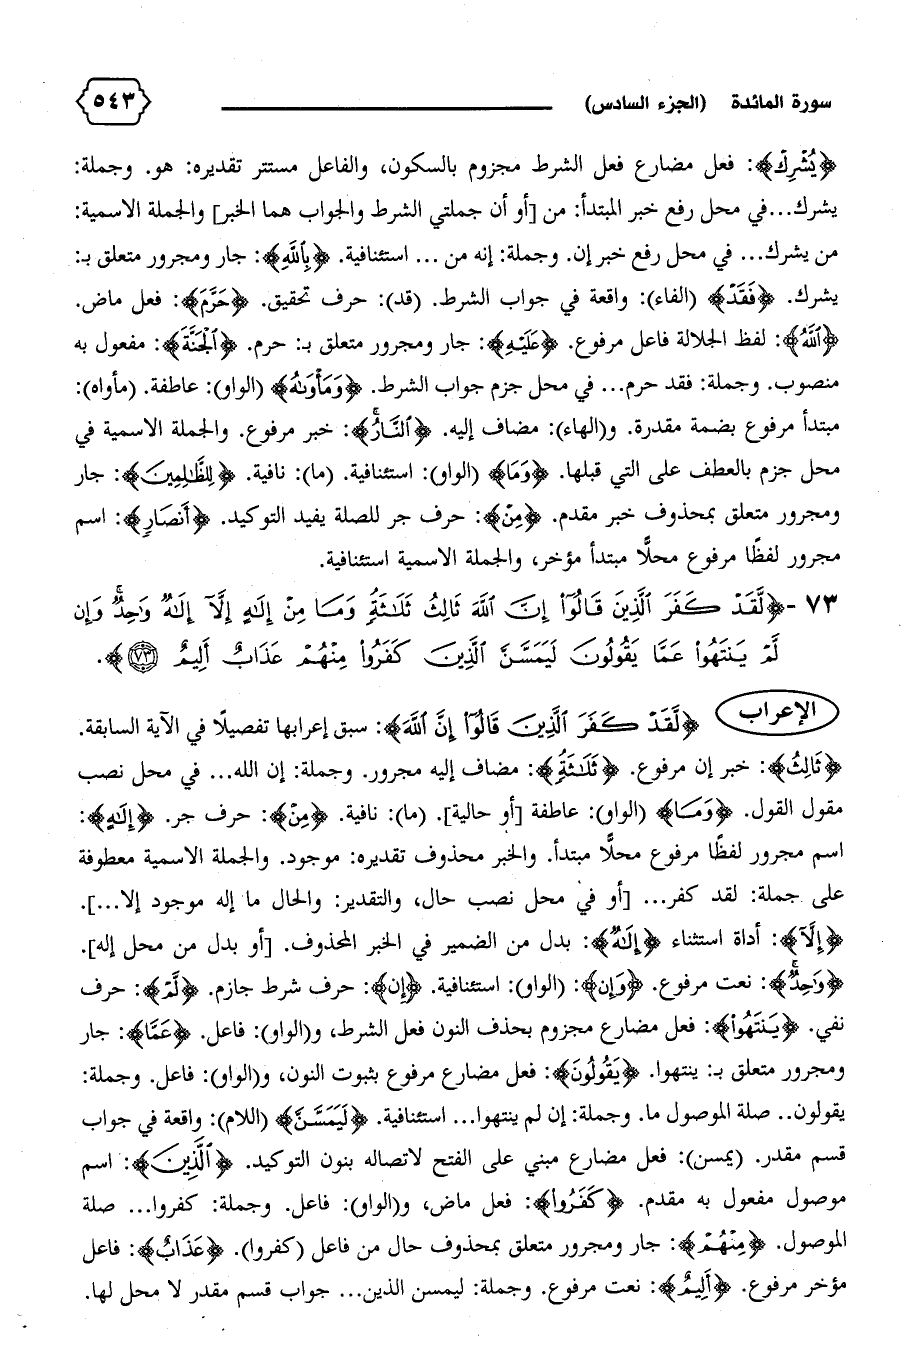 سورة المائدة (الجزء السادس) ٥٤٣
﴿يُشْرِكْ﴾: فعل مضارع فعل الشرط مجزوم بالسكون، والفاعل مستتر تقديره: هو. وجملة:
يشرك...في محل رفع خبر المبتدأ: من [أو أن جملتي الشرط والجواب هما الخبر] والجملة الاسمية:
من يشرك... في محل رفع خبر إن. وجملة: إنه من ... استئنافية. ﴿بِاللَّهِ﴾: جار ومجرور متعلق بـ:
يشرك. ﴿فَقَدْ﴾ (الفاء): واقعة في جواب الشرط. (قد): حرف تحقيق. ﴿حَرَّمَ﴾: فعل ماض.
﴿اللَّهُ﴾: لفظ الجلالة فاعل مرفوع. ﴿عَلَيْهِ﴾: جار ومجرور متعلق بـ: حرم. ﴿الْجَنَّةَ﴾: مفعول به
منصوب. وجملة: فقد حرم... في محل جزم جواب الشرط. ﴿وَمَأْوَىٰهُ﴾ (الواو): عاطفة. (مأواه):
مبتدأ مرفوع بضمة مقدرة. و(الهاء): مضاف إليه. ﴿النَّارُ ۖ﴾: خبر مرفوع. والجملة الاسمية في
محل جزم بالعطف على التي قبلها. ﴿وَمَا﴾ (الواو): استئنافية. (ما): نافية. ﴿لِلظَّٰلِمِينَ﴾: جار
ومجرور متعلق بمحذوف خبر مقدم. ﴿مِنْ﴾: حرف جر للصلة يفيد التوكيد. ﴿أَنصَارٍ﴾: اسم
مجرور لفظًا مرفوع محلًّا مبتدأ مؤخر، والجملة الاسمية استئنافية.
٧٣ -﴿لَّقَدْ كَفَرَ الَّذِينَ قَالُوٓا۟ إِنَّ اللَّهَ ثَالِثُ ثَلَٰثَةٍ ۘ وَمَا مِنْ إِلَٰهٍ إِلَّآ إِلَٰهٌ وَٰحِدٌ ۚ وَإِن
لَّمْ يَنتَهُوا۟ عَمَّا يَقُولُونَ لَيَمَسَّنَّ الَّذِينَ كَفَرُوا۟ مِنْهُمْ عَذَابٌ أَلِيمٌ ﴿٧٣﴾﴾.
الإعراب ﴿لَّقَدْ كَفَرَ الَّذِينَ قَالُوٓا۟ إِنَّ اللَّهَ﴾: سبق إعرابها تفصيلًا في الآية السابقة.
﴿ثَالِثُ﴾: خبر إن مرفوع. ﴿ثَلَٰثَةٍ ۘ﴾: مضاف إليه مجرور. وجملة: إن الله... في محل نصب
مقول القول. ﴿وَمَا﴾ (الواو): عاطفة [أو حالية]. (ما): نافية. ﴿مِنْ﴾: حرف جر. ﴿إِلَٰهٍ﴾:
اسم مجرور لفظًا مرفوع محلًّا مبتدأ. والخبر محذوف تقديره: موجود. والجملة الاسمية معطوفة
على جملة: لقد كفر... [أو في محل نصب حال، والتقدير: والحال ما إله موجود إلا...].
﴿إِلَّآ﴾: أداة استثناء ﴿إِلَٰهٌ﴾: بدل من الضمير في الخبر المحذوف. [أو بدل من محل إله].
﴿وَٰحِدٌ ۚ﴾: نعت مرفوع. ﴿وَإِن﴾: (الواو): استئنافية. ﴿إِن﴾: حرف شرط جازم. ﴿لَّمْ﴾: حرف
نفي. ﴿يَنتَهُوا۟﴾: فعل مضارع مجزوم بحذف النون فعل الشرط، و(الواو): فاعل. ﴿عَمَّا﴾: جار
ومجرور متعلق بـ: ينتهوا. ﴿يَقُولُونَ﴾: فعل مضارع مرفوع بثبوت النون، و(الواو): فاعل. وجملة:
يقولون.. صلة الموصول ما. وجملة: إن لم ينتهوا... استئنافية. ﴿لَيَمَسَّنَّ﴾ (اللام): واقعة في جواب
قسم مقدر. (يمسن): فعل مضارع مبني على الفتح لاتصاله بنون التوكيد. ﴿الَّذِينَ﴾: اسم
موصول مفعول به مقدم. ﴿كَفَرُوا۟﴾: فعل ماض، و(الواو): فاعل. وجملة: كفروا... صلة
الموصول. ﴿مِنْهُمْ﴾: جار ومجرور متعلق بمحذوف حال من فاعل (كفروا). ﴿عَذَابٌ﴾: فاعل
مؤخر مرفوع. ﴿أَلِيمٌ﴾: نعت مرفوع. وجملة: ليمسن الذين... جواب قسم مقدر لا محل لها.